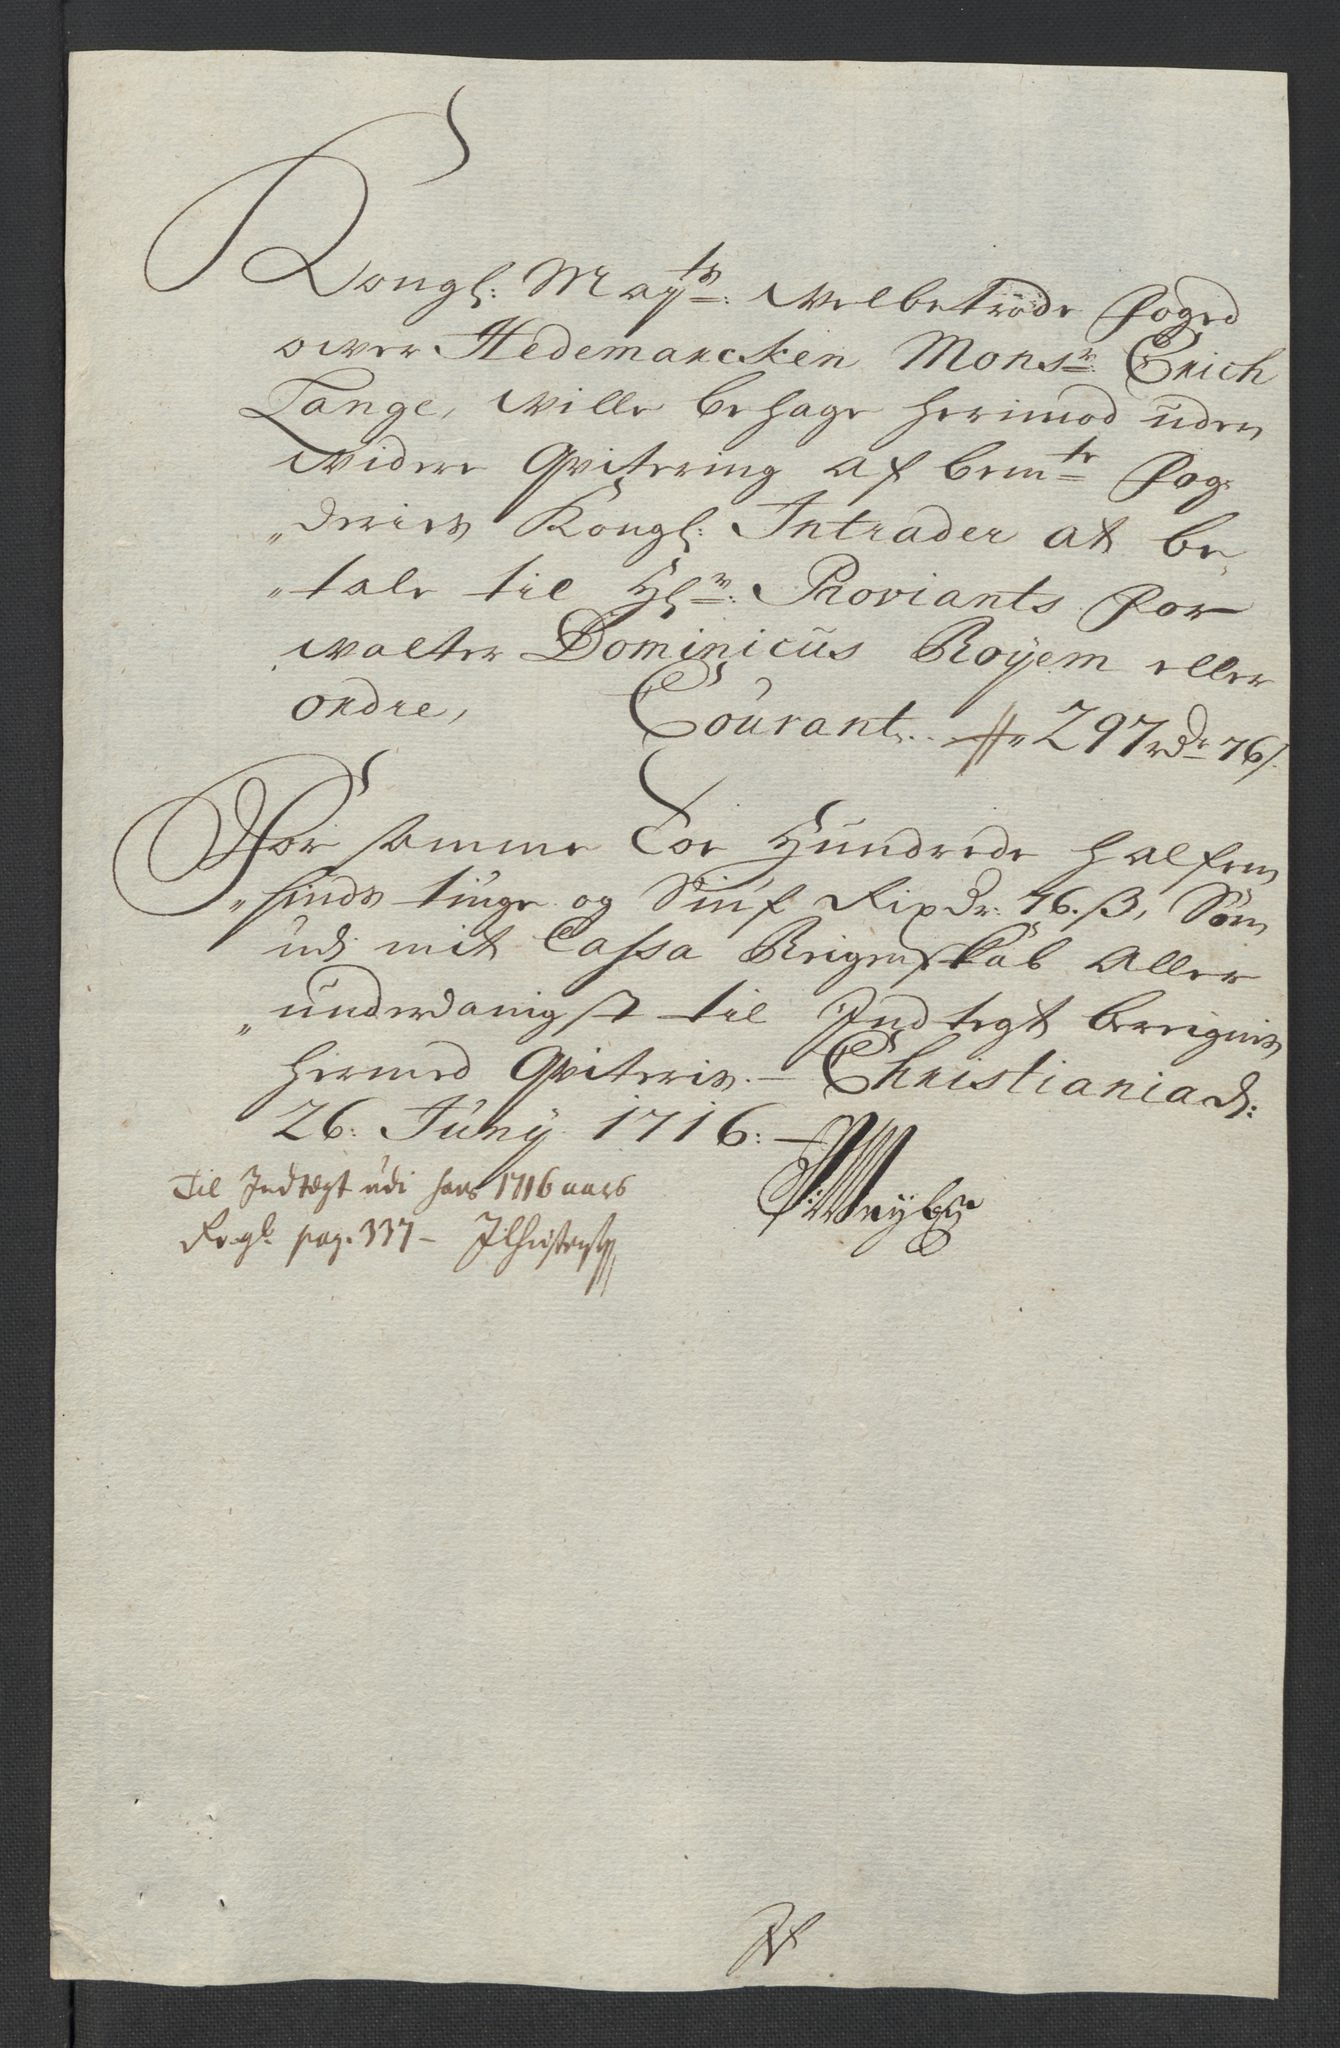 Kongl: May:ts: Welbetrode Foged
ower Hedemarcken Monsr: Erich
Lange, Wille behage herimod uden
Widere Qvitering af bemte Fog„
„deries Kongl: Intrader at be„
„tale til Hr: Proviants For
walter Dominicus Royem eller
ordre, Courant.. 297 rdr 76 ß.
For samme Toe Hundrede halfem
„sinds tiuge og Siuf Rixdr: 76. ß, Som
udj mit Cassa Reigenskab aller
„underdanigst til Indtegt bereignes
hermed Qviteris. – Christiania d:
26: Juny 1716: –
Til Indtegt udi hans 1716 aars
Regl. pag. 337 –